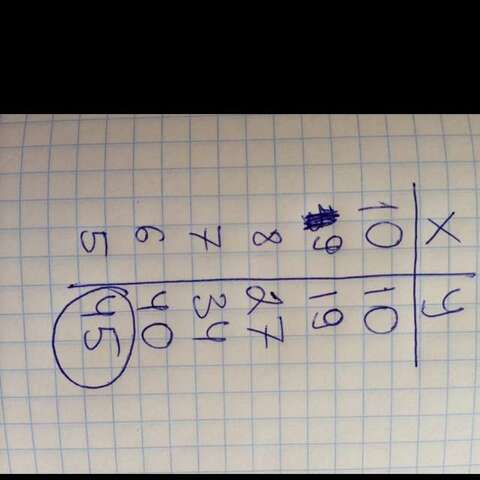 x y
10 10
9 19
8 27
7 34
6 40
5 45